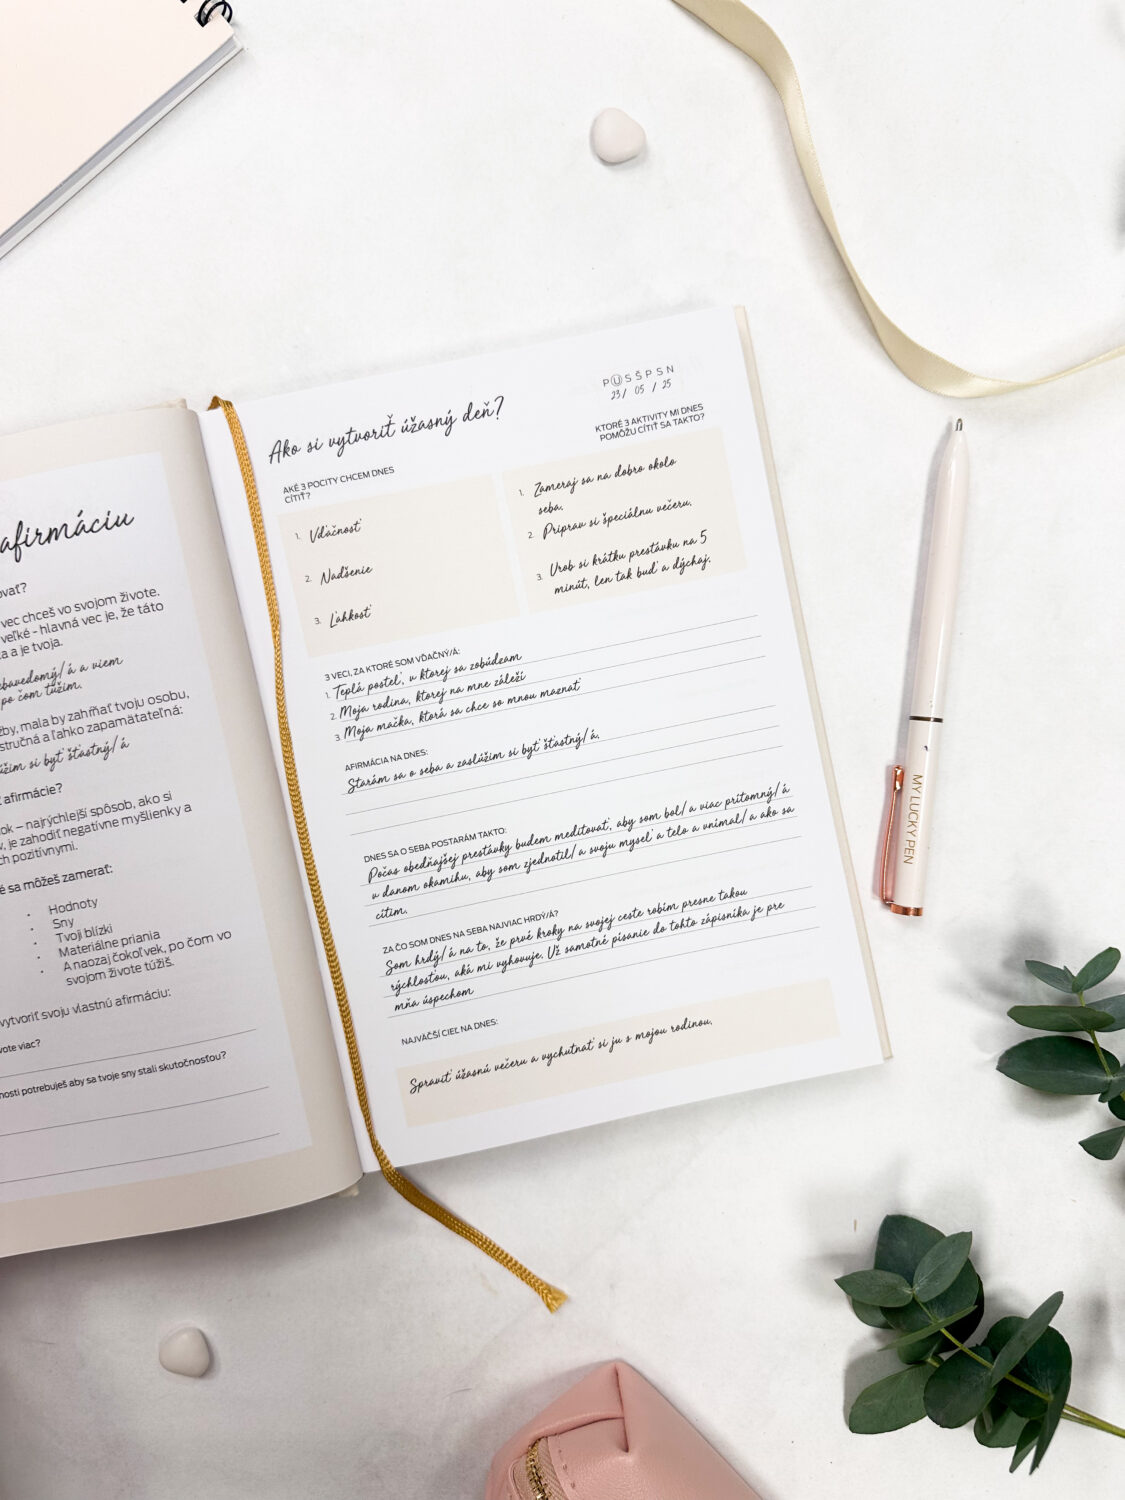 afirmáciu
vec chceš vo svojom živote.
veľké - hlavná vec je, že táto
a je tvoja.
/á a viem
po čom túžim.
mala by zahŕňať tvoju osobu,
stručná a ľahko zapamätateľná:
si byť šťastný/á
afirmácie?
najrýchlejší spôsob, ako si
je zahodiť negatívne myšlienky a
pozitívnymi.
sa môžeš zamerať:
• Hodnoty
• Sny
• Tvoji blízki
• Materiálne priania
• A naozaj čokoľvek, po čom vo
svojom živote túžiš.
vytvoriť svoju vlastnú afirmáciu:
viac?
potrebuješ aby sa tvoje sny stali skutočnosťou?
Ako si vytvoriť úžasný deň?
P U S Š P S N
23/ 05 / 25
AKÉ 3 POCITY CHCEM DNES
CÍTIŤ?
1. Vďačnosť
2. Nadšenie
3. Ľahkosť
KTORÉ 3 AKTIVITY MI DNES
POMÔŽU CÍTIŤ SA TAKTO?
1. Zameraj sa na dobro okolo
seba.
2. Priprav si špeciálnu večeru.
3. Urob si krátku prestávku na 5
minút, len tak buď a dýchaj.
3 VECI, ZA KTORÉ SOM VĎAČNÝ/Á:
1. Teplá posteľ, v ktorej sa zobúdzam
2. Moja rodina, ktorej na mne záleží
3. Moja mačka, ktorá sa chce so mnou maznať
AFIRMÁCIA NA DNES:
Starám sa o seba a zaslúžim si byť šťastný/á.
DNES SA O SEBA POSTARÁM TAKTO:
Počas obedňajšej prestávky budem meditovať, aby som bol/a viac prítomný/á
v danom okamihu, aby som zjednotil/a svoju myseľ a telo a vnímal/a ako sa
cítim.
ZA ČO SOM DNES NA SEBA NAJVIAC HRDÝ/Á?
Som hrdý/á na to, že prvé kroky na svojej ceste robím presne takou
rýchlosťou, aká mi vyhovuje. Už samotné písanie do tohto zápisníka je pre
mňa úspechom
NAJVÄČŠÍ CIEĽ NA DNES:
Spraviť úžasnú večeru a vychutnať si ju s mojou rodinou.
MY LUCKY PEN